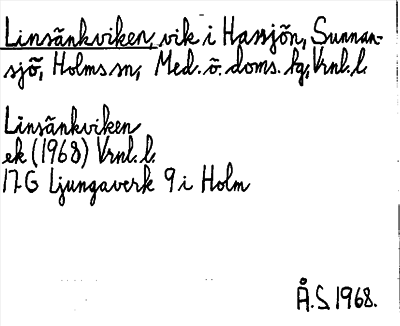 Linsänkviken, vik i Hassjön, Sunnan-
sjö, Holms sn, Med. ö. doms. kg, Vrnl. l.
Linsänkviken
ek (1968) Vrnl. l.
17G Ljungaverk 9 i Holm
Å.S 1968.